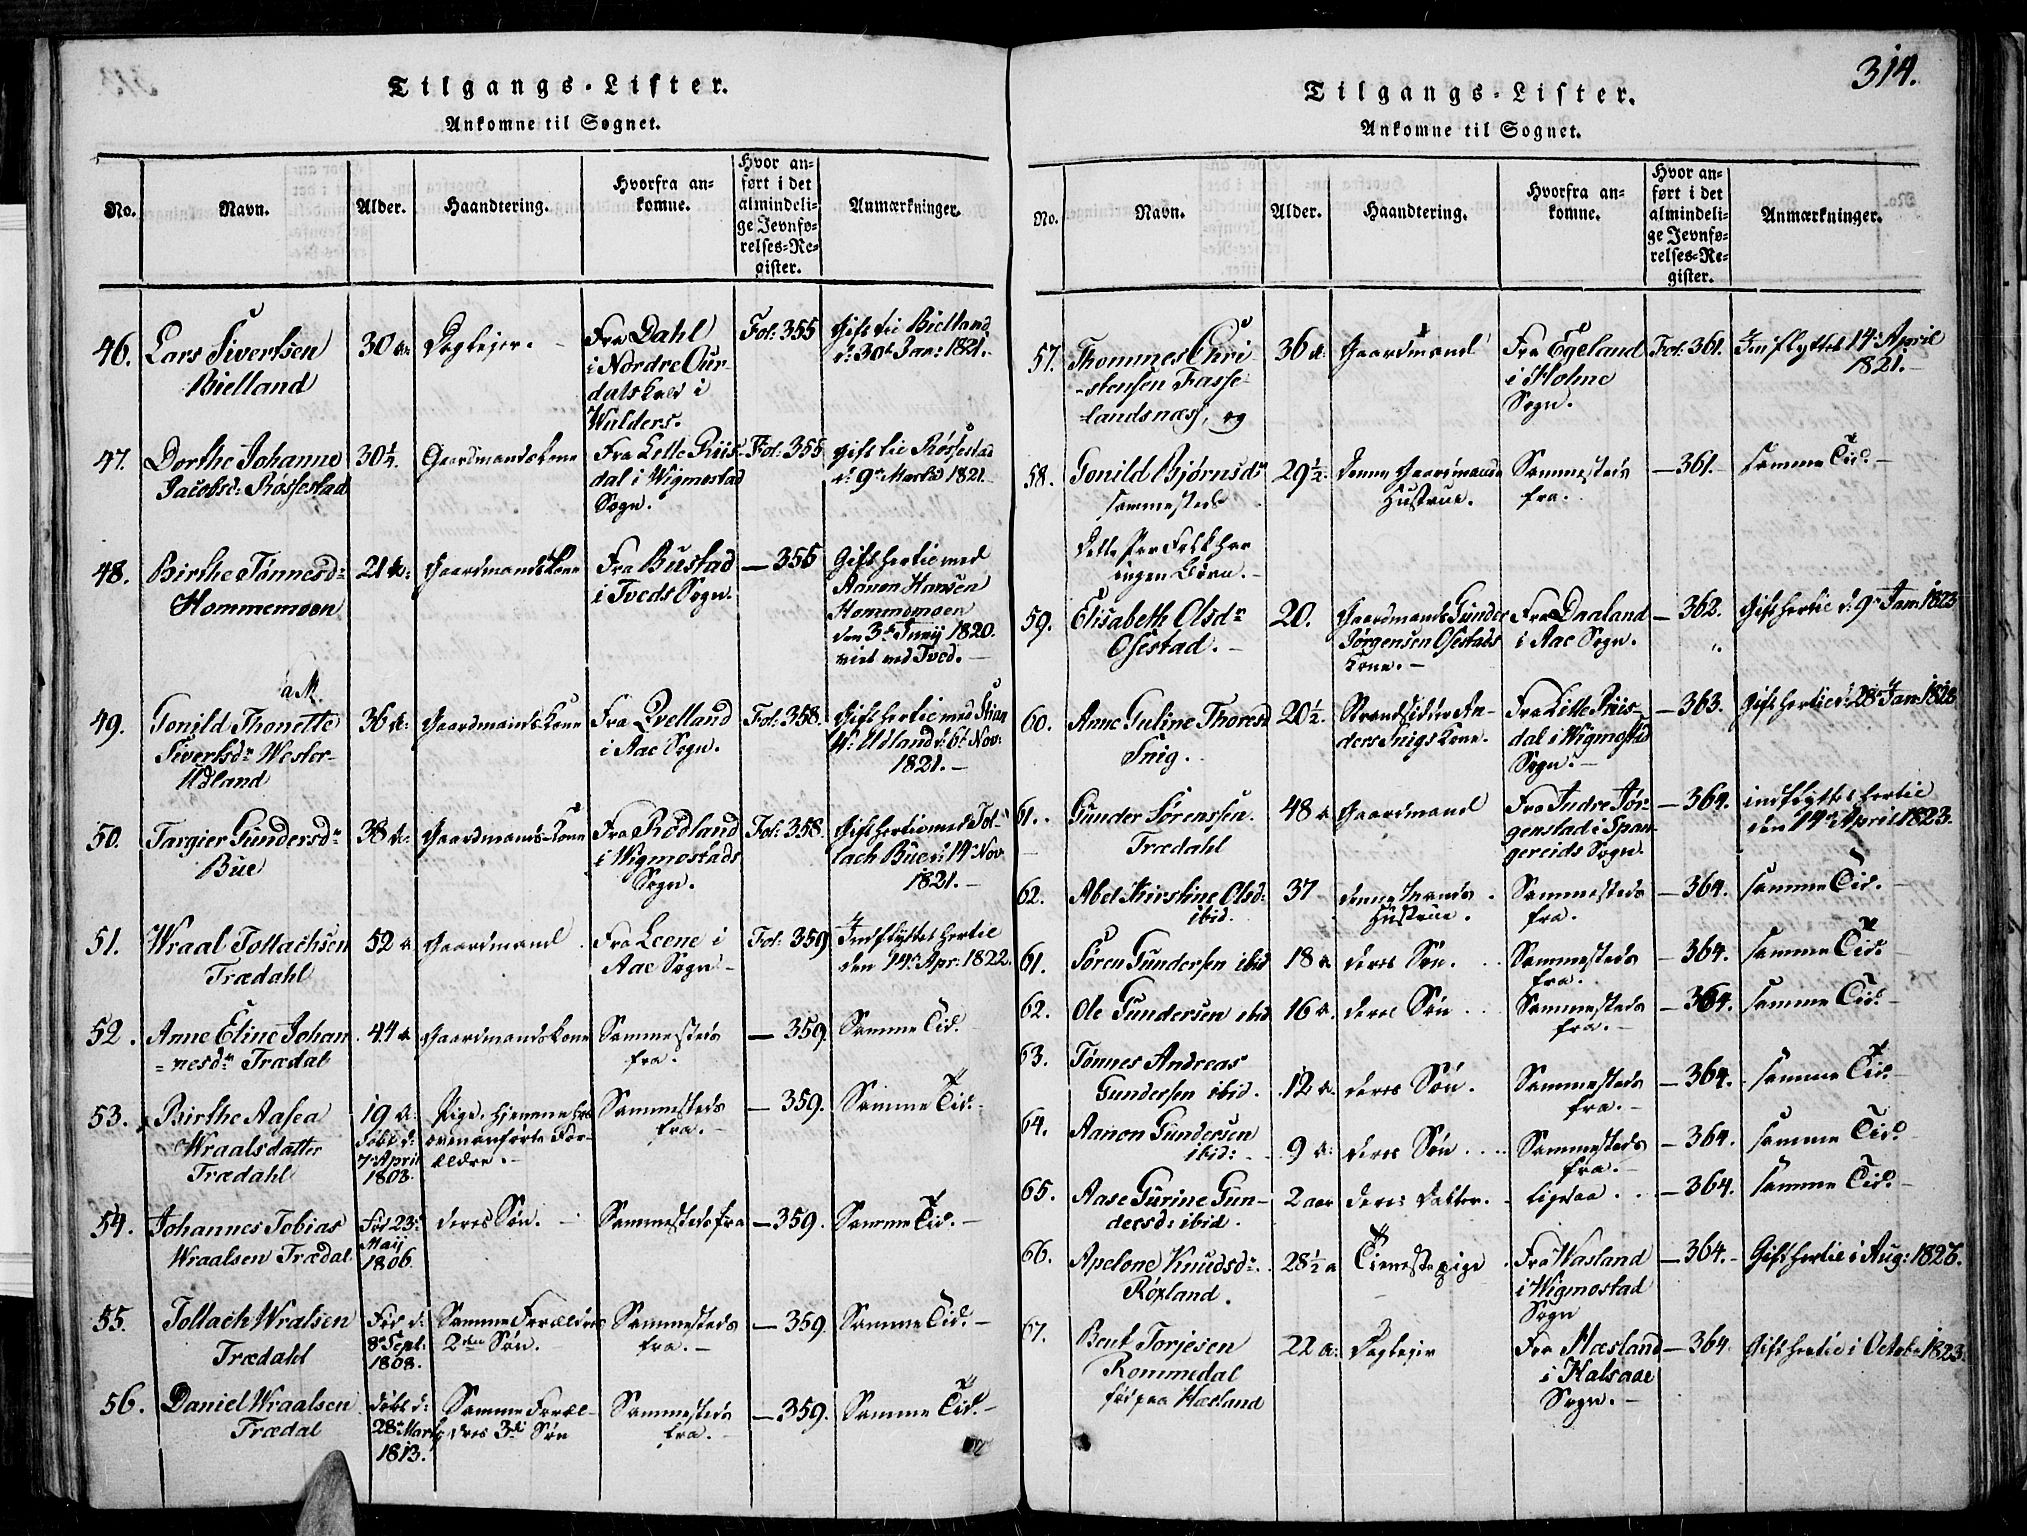 Tilgangs-Lister.
Ankomne til Sognet.
No.
Navn.
Alder.
Haandtering.
Hvorfra an-
komne.
Hvor an-
ført i det
almindeli-
ge Jevnfø-
relses-Re-
gister.
Anmærkninger.
46. Lars Sivertsen
Bielland
30 a:
Dagleier.
Fra Dahl
i Nordre Our-
dals
i
Walders.
Fol: 355
Gift til Bielland
d: 30t Jan: 1821.
47. Dorthe Johanne
Jacobsd: Røssestad
30½.
Gaardmandskone
Fra Lille Riis-
dal i Wigmostad
Sogn.
Fol: 355
Gift til Røssestad
d: 9de Martii 1821.
48. Birthe Tønnesd:
Hommemoen
21 a:
Gaardmandskone
Fra Bustad
i Tveds Sogn.
— 355
Gift hertil med
Aanon Hansen
Hommemoen
den 3de Junij 1820.
viet ved Tved. —
49. Gonild Thonette
Sivertsdr Wester-
Udland
36 a:
Gaardmandskone
Fra Qvelland
i Aae Sogn.
Fol: 358.
Gift hertil med Stian
W: Udland d: 6t Nov:
1821. —
50. Targier Gundersdr
Bue
38 a:
Gaardmandskone
Fra Rødland
i Wigmostads
Sogn.
Fol: 358.
Gift hertil med Tol-
lach Bue d: 14de Nov
1821. —
51. Wraal Tollachsen
Trædahl
52 a
Gaardmand
Fra Leene i
Aae Sogn
Fol: 359
Indflyttet hertil
den 14de Apr: 1822.
52. Anne Eline Johan
=nesdr Trædal
44 a
Gaardmandskone
Sammesteds
fra.
— 359.
Samme Tid.
53. Birthe Aasea
Wraalsdatter
Trædahl
19 a:
døbt d:
7de April
1803.
Pige, hjemme hos
ovenanførte For-
ældre. —
Sammesteds
fra. —
— 359.
Samme Tid. —
54. Johannes Tobias
Wraalsen Trædal
Fød 23:
Maij
1806
deres Søn. —
Sammestedsfra
— 359.
Samme Tid. —
55. Tollach Wralsen
Trædahl
Fød d:
8de Sept:
1808.
Samme Forældres
2den Søn. —
Sammesteds
fra. —
— 359.
Samme Tid. —
56. Daniel Wraalsen
Trædal
døbt d:
28de Mart
1813.
Samme Foræl-
dres 3die Søn
Sammesteds
fra. —
— 359.
Samme Tid. —
314.
Tilgangs-Lister.
Ankomne til Sognet.
No.
Navn.
Alder.
Haandtering.
Hvorfra an-
komne.
Hvor an-
ført i det
almindeli-
ge Jevnfø-
relses-Re-
gister.
Anmærkninger.
57. Thommes Chri
-stensen Fasse-
landsnæss, og
36 a:
Gaardmand
Fra Egeland
i Holme
Sogn.
Fol: 361.
Indflyttet 14de April
1821. —
58. Gonild Bjørnsdr
sammesteds
29½.
denne Gaardmands
Hustrue.
Sammesteds
fra.
— 361.
samme Tid. —
Dette Par Folk har
ingen Børn. —
59. Elisabeth Olsdr
Ofsestad. —
20.
Gaardmands Gunder
Jørgensen Ofsestads
Kone. —
Fra Daaland
i Aae Sogn.
— 362.
Gift hertil d: 9de Jan: 1823
60. Anne Guline Thoresd
Snig.
20½.
Strandsidder An-
ders Snigs Kone.
Fra Lille Riis-
dal i Wigmostad
Sogn. —
— 363.
Gift hertil d: 28de Jan: 1823
61. Gunder Sørenssen
Trædahl
48 a
Gaardmand
Fra Indre Jør-
genstad i Span-
gereids Sogn.
— 364.
indflyttet hertil
den 14de April 1823.
62. Abel Kirstine Olsd:
ibid.
37
denne Mands
Hustrue.
Sammesteds
fra.
— 364.
samme Tid. —
61. Søren Gundersen ibid
18 a
deres Søn.
Sammesteds
fra.
— 364.
samme Tid. —
62. Ole Gundersen ibid
16 a.
deres Søn
Sammesteds
fra. —
— 364.
samme Tid. —
63. Tønnes Andreas
Gundersen ibid.
12 a.
deres Søn.
Sammesteds
fra. —
— 364.
samme Tid.
64. Aanon Gundersen
ibid:
9 a:
deres Søn
Sammesteds
fra. —
— 364.
samme Tid.
65. Aase Gurine Gun-
dersd: ibid.
2 aar
deres Datter.
ligesaa
— 364.
samme Tid. —
66. Apelone Knudsdr
Røxland.
28½ a
Tienestepige
Fra Wasland
i Wigmostad
Sogn
— 364. —
Gift hertil i Aug: 1823.
67. Bent Torjesen
Rommedal
fød paa Hæsland
22 a:
Dagleier
Fra Hæsland
i Halsaae
Sogn. —
— 364.
Gift hertil i October 1823.